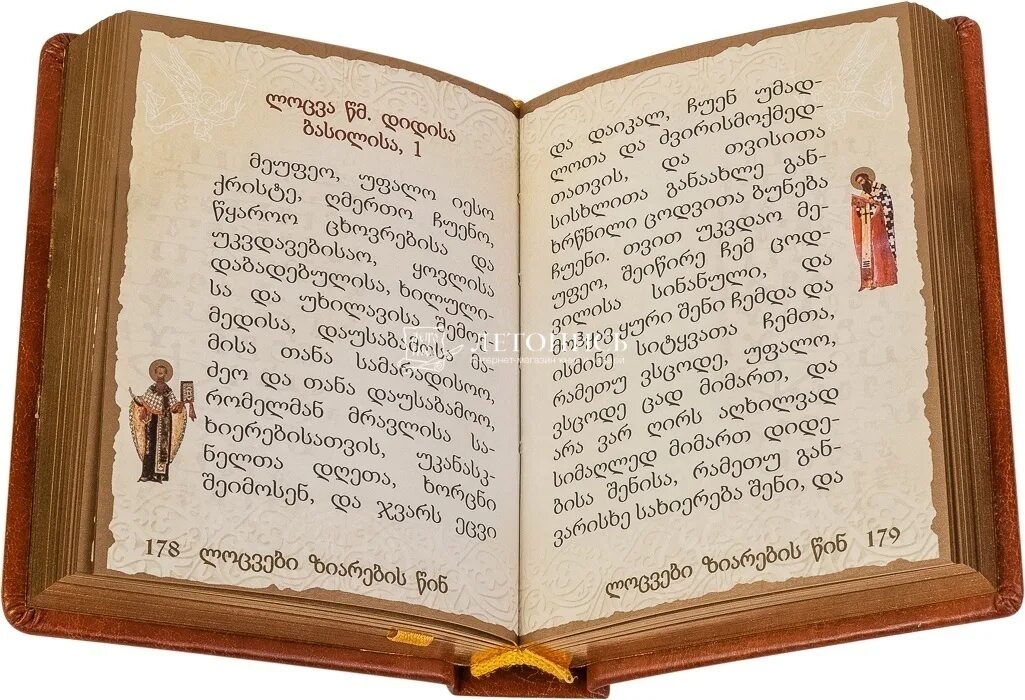 ლოცვა წმ. დიდისა
ბასილისა, 1
მეუფეო, უფალო იესო
ქრისტე, ღმერთო ჩუენო,
წყაროო ცხოვრებისა და
უკვდავებისაო, ყოვლისა
დაბადებულისა, ხილული-
სა და უხილავისა შემოქ-
მედისა, დაუსაბამოსა მა-
მისა თანა სამარადისოო,
ძეო და თანა დაუსაბამოო,
რომელმან მრავლისა სა-
ხიერებისათვის, უკანასკ-
ნელთა დღეთა, ხორცნი
შეიმოსენ, და ჯვარს ეცვი
178 ლოცვები ზიარების წინ
და დაიკალ, ჩუენ უმად-
ლოთა და ძვირისმოქმედ-
თათვის, და თვისითა
სისხლითა განაახლე გან-
ხრწნილი ცოდვითა ბუნება
ჩუენი. თვით უკვდაო მე-
უფეო, შეიწირე ჩემ ცოდ-
ვილისა სინანული, და
მოყავ ყური შენი ჩემდა და
ისმინე სიტყვათა ჩემთა,
რამეთუ ვსცოდე, უფალო,
ვსცოდე ცად მიმართ, და
არა ვარ ღირს აღხილვად
სიმაღლედ მიმართ დიდე-
ბისა შენისა, რამეთუ გან-
ვარისხე სახიერება შენი, და
ლოცვები ზიარების წინ 179
ЛЕТОПИСЬ